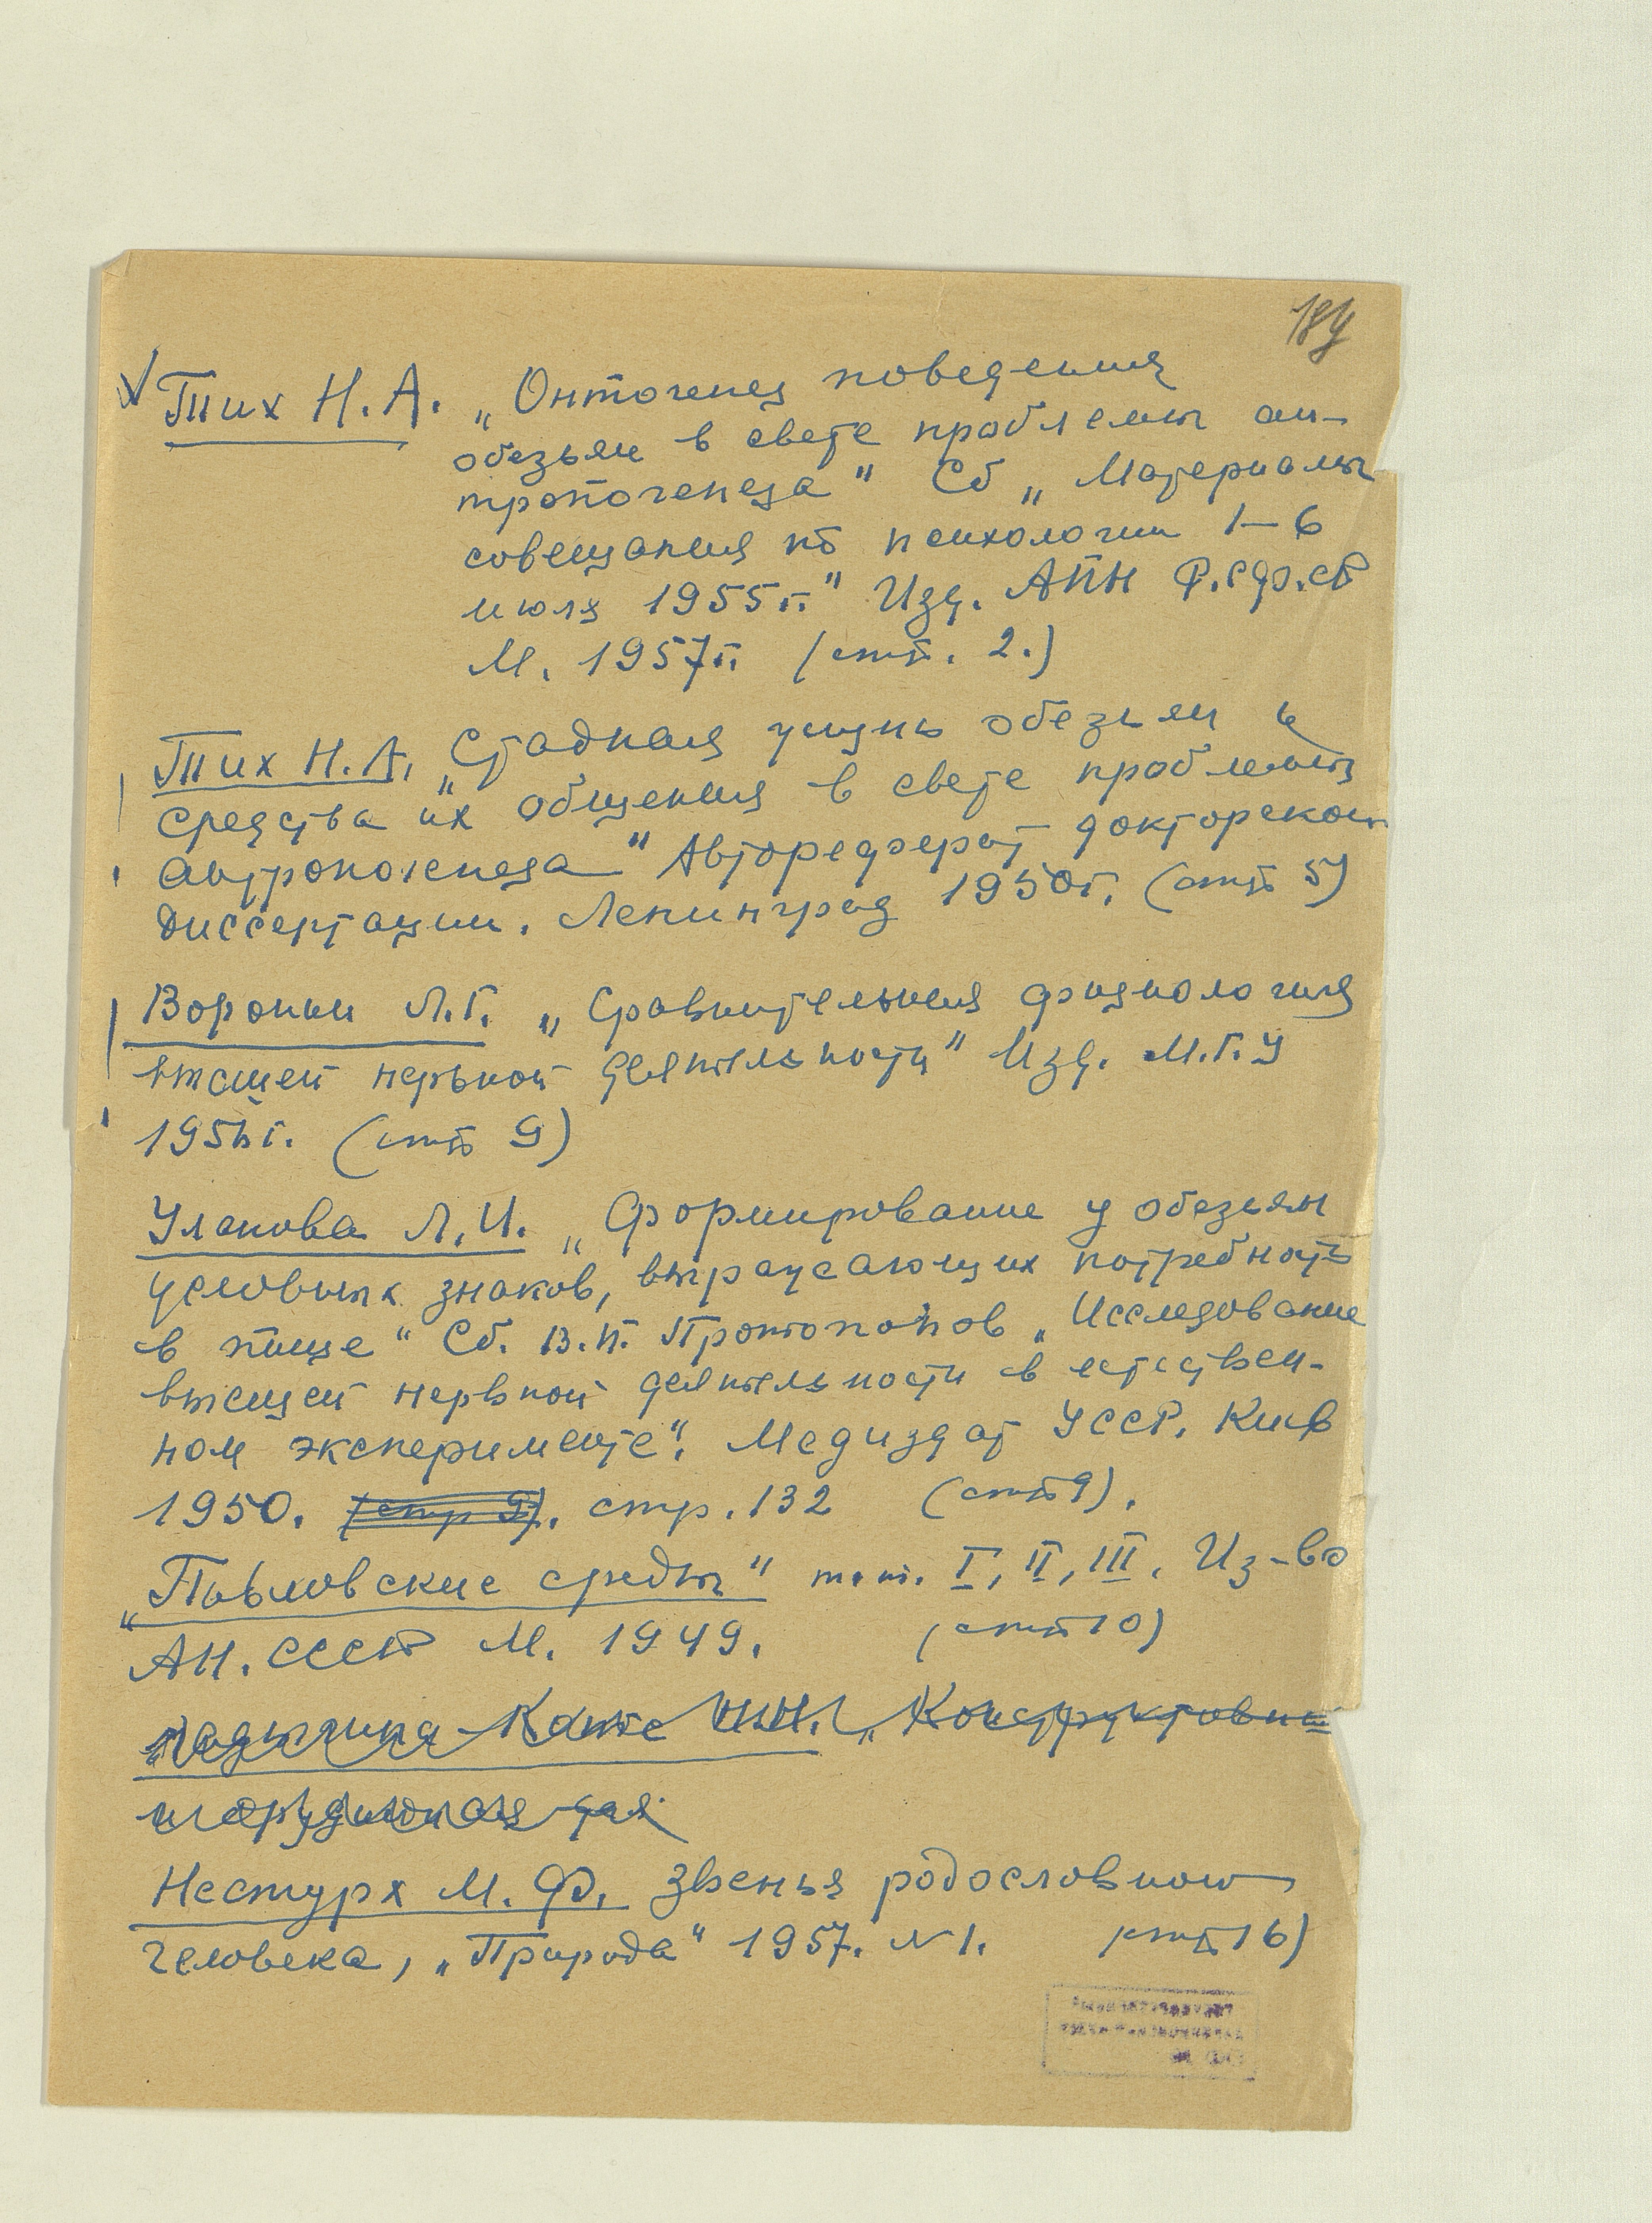 184
Тих Н.А. „Онтогенез поведения
обезьян в свете проблемы ан-
тропогенеза" Сб „Материалы
совещания по психологии 1–6
июля 1955г." Изд. АПН Р.СФ.СР
М. 1957г. (стр. 2.)
Тих Н.А. „Стадная жизнь обезьян и
средства их общения в свете проблемы
антропогенеза" Автореферат докторской
диссертации. Ленинград 1950г. (стр 5)
Воронин Л.Г. „Сравнительная физиология
высшей нервной деятельности" Изд. М.Г.У
(стр 9)
Уланова Л.И. „Формирование у обезьян
условных знаков, выражающих потребность
в пище" Сб. В.П. Протопопов „Исследование
высшей нервной деятельности в естествен-
ном эксперименте". Медиздат УССР. Киев
1950. (стр 9). стр. 132 (стр 9).
„Павловские среды" т.т. I, II, III. Из-во
АН. СССР М. 1949. (стр 10)
Ладыгина-Котс Н.Н. „Конструктивная
и орудийная дея
Нестурх М.Ф. Звенья родословной
человека, „Природа" 1957. N 1. (стр 16)